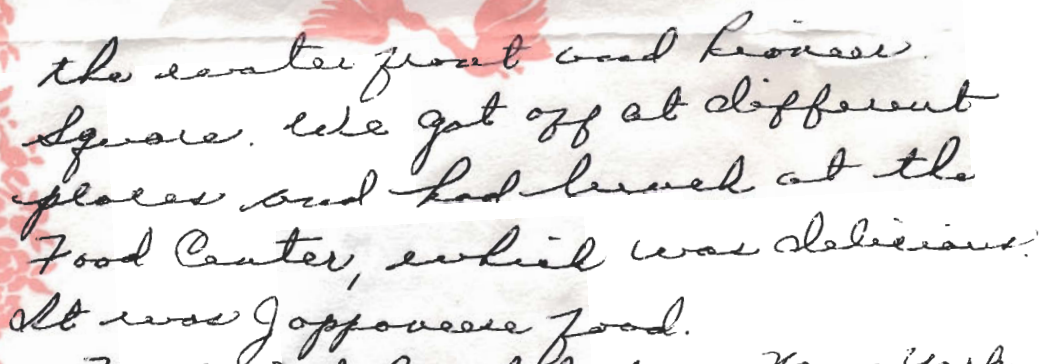 the water front and Pioneer
Square. We got off at different
places and had lunch at the
Food Center, which was delicious.
It was Jappaneese food.
New York